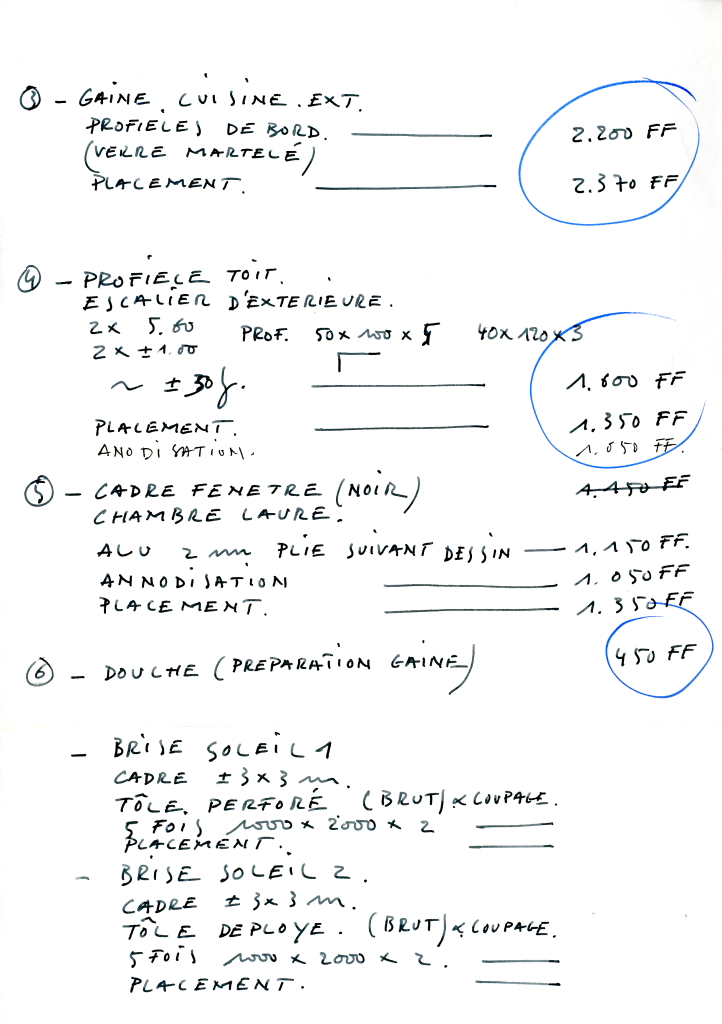 ③ – GAINE. CUISINE. EXT.
PROFIELES DE BORD. ——— 2.200 FF
(VERRE MARTELÉ)
PLACEMENT. ——— 2.370 FF
④ – PROFIELE TOIT.
ESCALIER D'EXTERIEURE.
2x 5.60 PROF. 50 x 100 x 5 40 x 120 x 3
2 x ± 1.00
~ ± 30 ——— 1.600 FF
PLACEMENT. ——— 1.350 FF
ANODISATION. 1.050 FF.
⑤ – CADRE FENETRE (NOIR) 1.150 FF
CHAMBRE LAURE.
ALU 2 mm PLIE SUIVANT DESSIN — 1.150 FF.
ANNODISATION ——— 1.050 FF
PLACEMENT. ——— 1.350 FF
⑥ – DOUCHE (PREPARATION GAINE) 450 FF
– BRISE SOLEIL 1
CADRE ± 3 x 3 m.
TÔLE. PERFORÉ (BRUT) COUPAGE.
5 FOIS 1000 x 2000 x 2 ———
PLACEMENT. ———
– BRISE SOLEIL 2.
CADRE ± 3x 3 m.
TÔLE DEPLOYE. (BRUT) COUPAGE.
5 FOIS 1000 x 2000 x 2. ———
PLACEMENT. ———